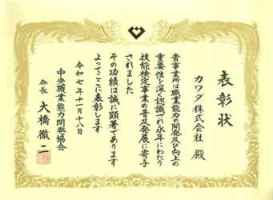 表彰状
カワダ株式会社 殿
貴事業所は職業能力の開発及び向上の
重要性を深く認識され永年にわたり
技能検定事業の普及発展に寄与
されました
その功績は誠に顕著であります
よってここに表彰します
令和七年十一月十八日
中央職業能力開発協会
会長 大橋徹二